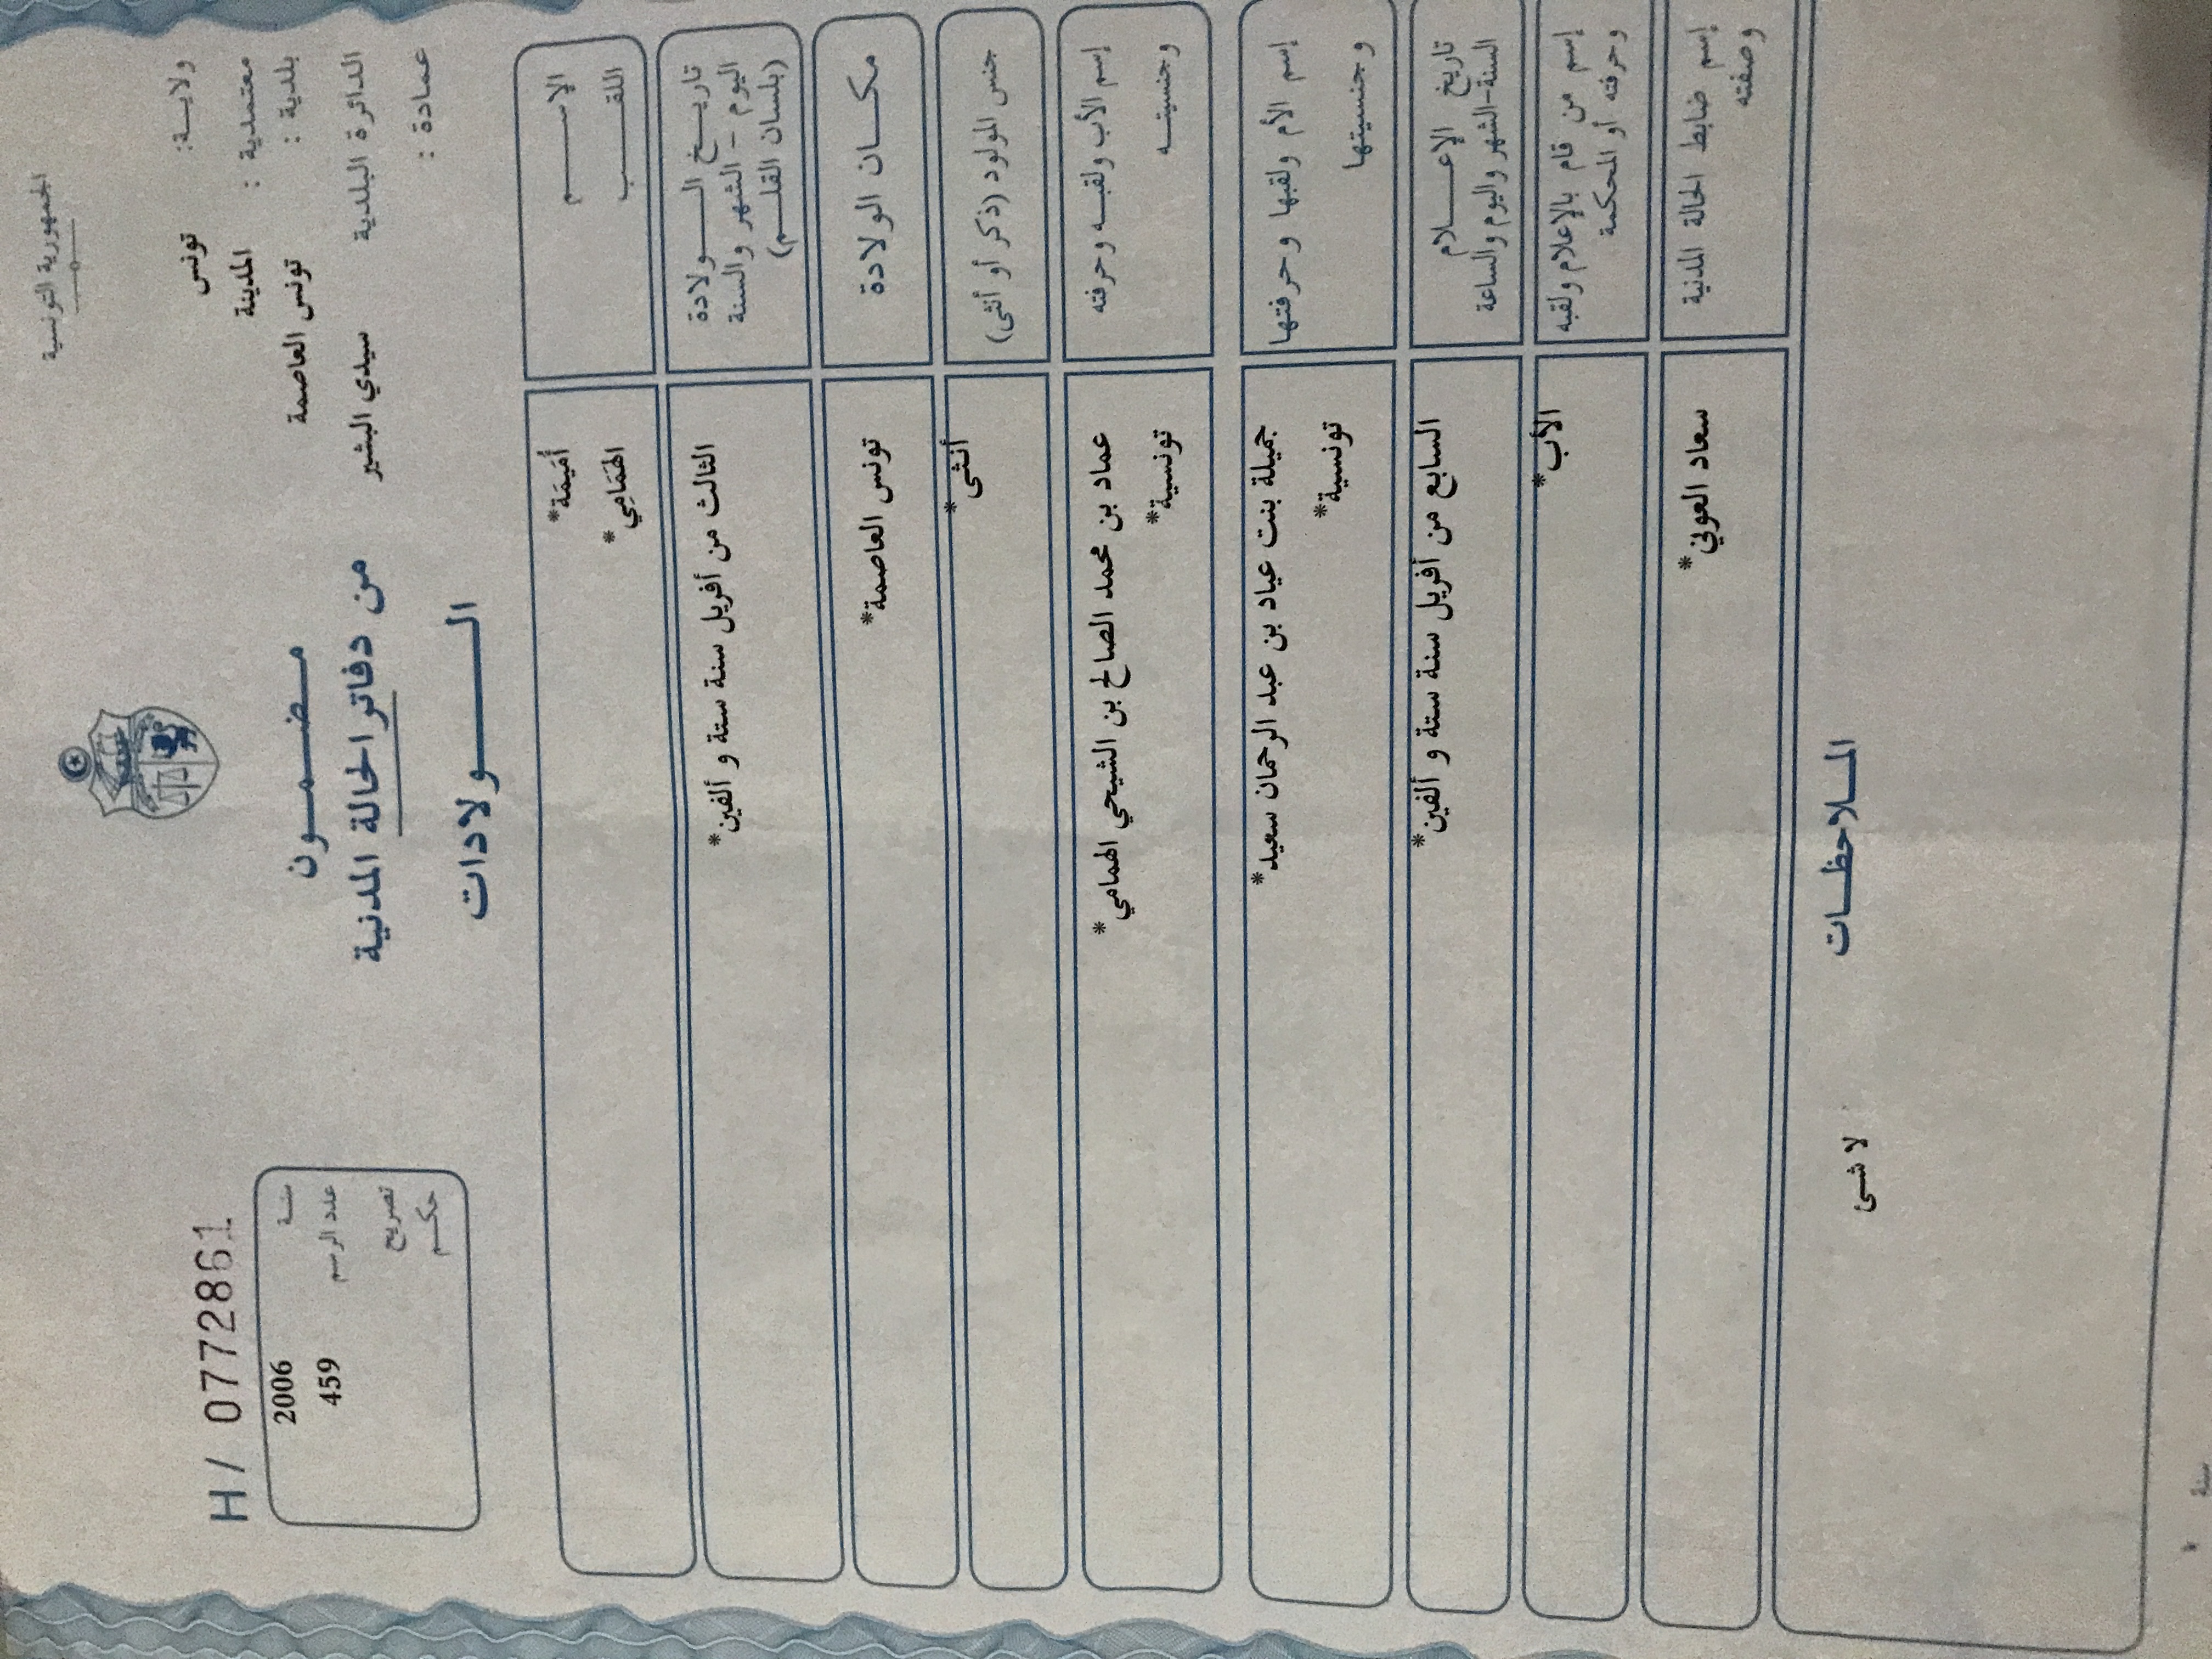 الجمهورية التونسية
ولايـــة: تونس
معتمدية : المدينة
بلدية : تونس العاصمة
الدائرة البلدية سيدي البشير
عمادة :
مـضــمــون
من دفاتر الحالة المدنية
الــــولادات
H/ 0772861
سنــة 2006
عدد الرسم 459
تصريح
حكــم
الإســـــم أُمَيمَة*
اللقــــب الهَمَامِي*
تاريـــخ الــــــولادة
اليوم - الشهر والسنة
(بلسان القلـــم)
الثالث من أفريل سنة ستة و ألفين*
مكـــان الولادة تونس العاصمة*
جنس المولود (ذكر أو أنثى) أنثى*
إسم الأب ولقبـــه وحرفته عماد بن محمد الصالح بن الشيحي الهمامي*
وجنسيتــه تونسية*
إسم الأم ولقبها وحرفتها جميلة بنت عياد بن عبد الرحمان سعيد*
وجنسيتها تونسية*
تاريخ الإعـــــلام
السنة-الشهر واليوم والساعة
السابع من أفريل سنة ستة و ألفين*
إسم من قام بالإعلام ولقبه
وحرفته أو المحكمة
الأب*
إسم ضابط الحالة المدنية
وصفته
سعاد العوني*
المــلاحظــات
لا شئ
سنة